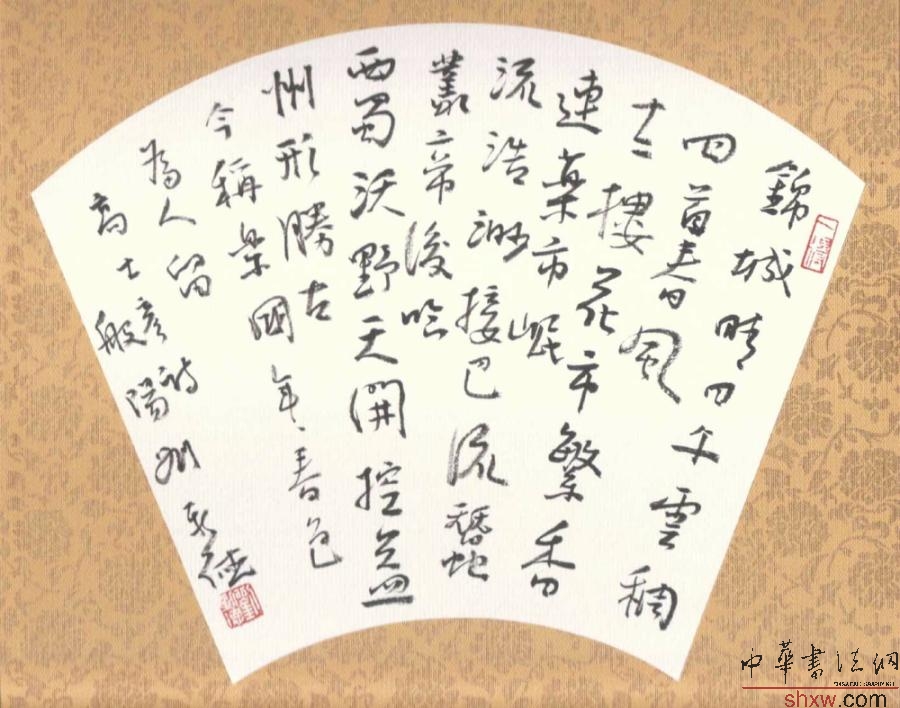 錦城晴日雲稠
回首春風
十二樓花市繁香
連藥市岷
流浩渺接巴流蠶
叢帝後
西蜀沃野天開控益
州形勝古
今稱樂國年年春色
為人留
高士彥詩
般陽
中華書法網
shxw.com